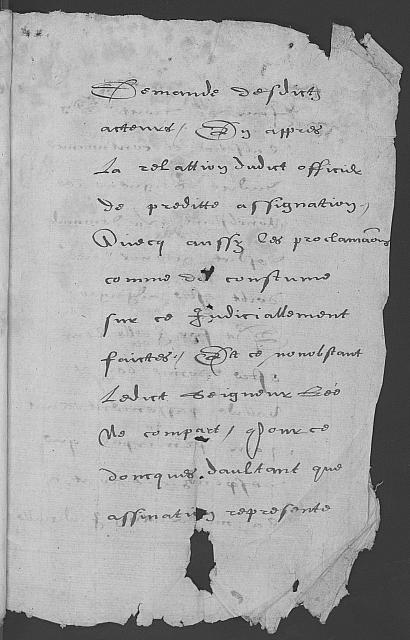 Demande desdictz
acteurs / Et en appres
La rellation dudict officier
de preditte assignation /
Avecq aussy les proclamaons
comme de coustume
sur ce Judiciallement
faictes / Et ce nonobstant
Ledict Seigneur
Ne compart / pour ce
doncques daultant que
assination represente